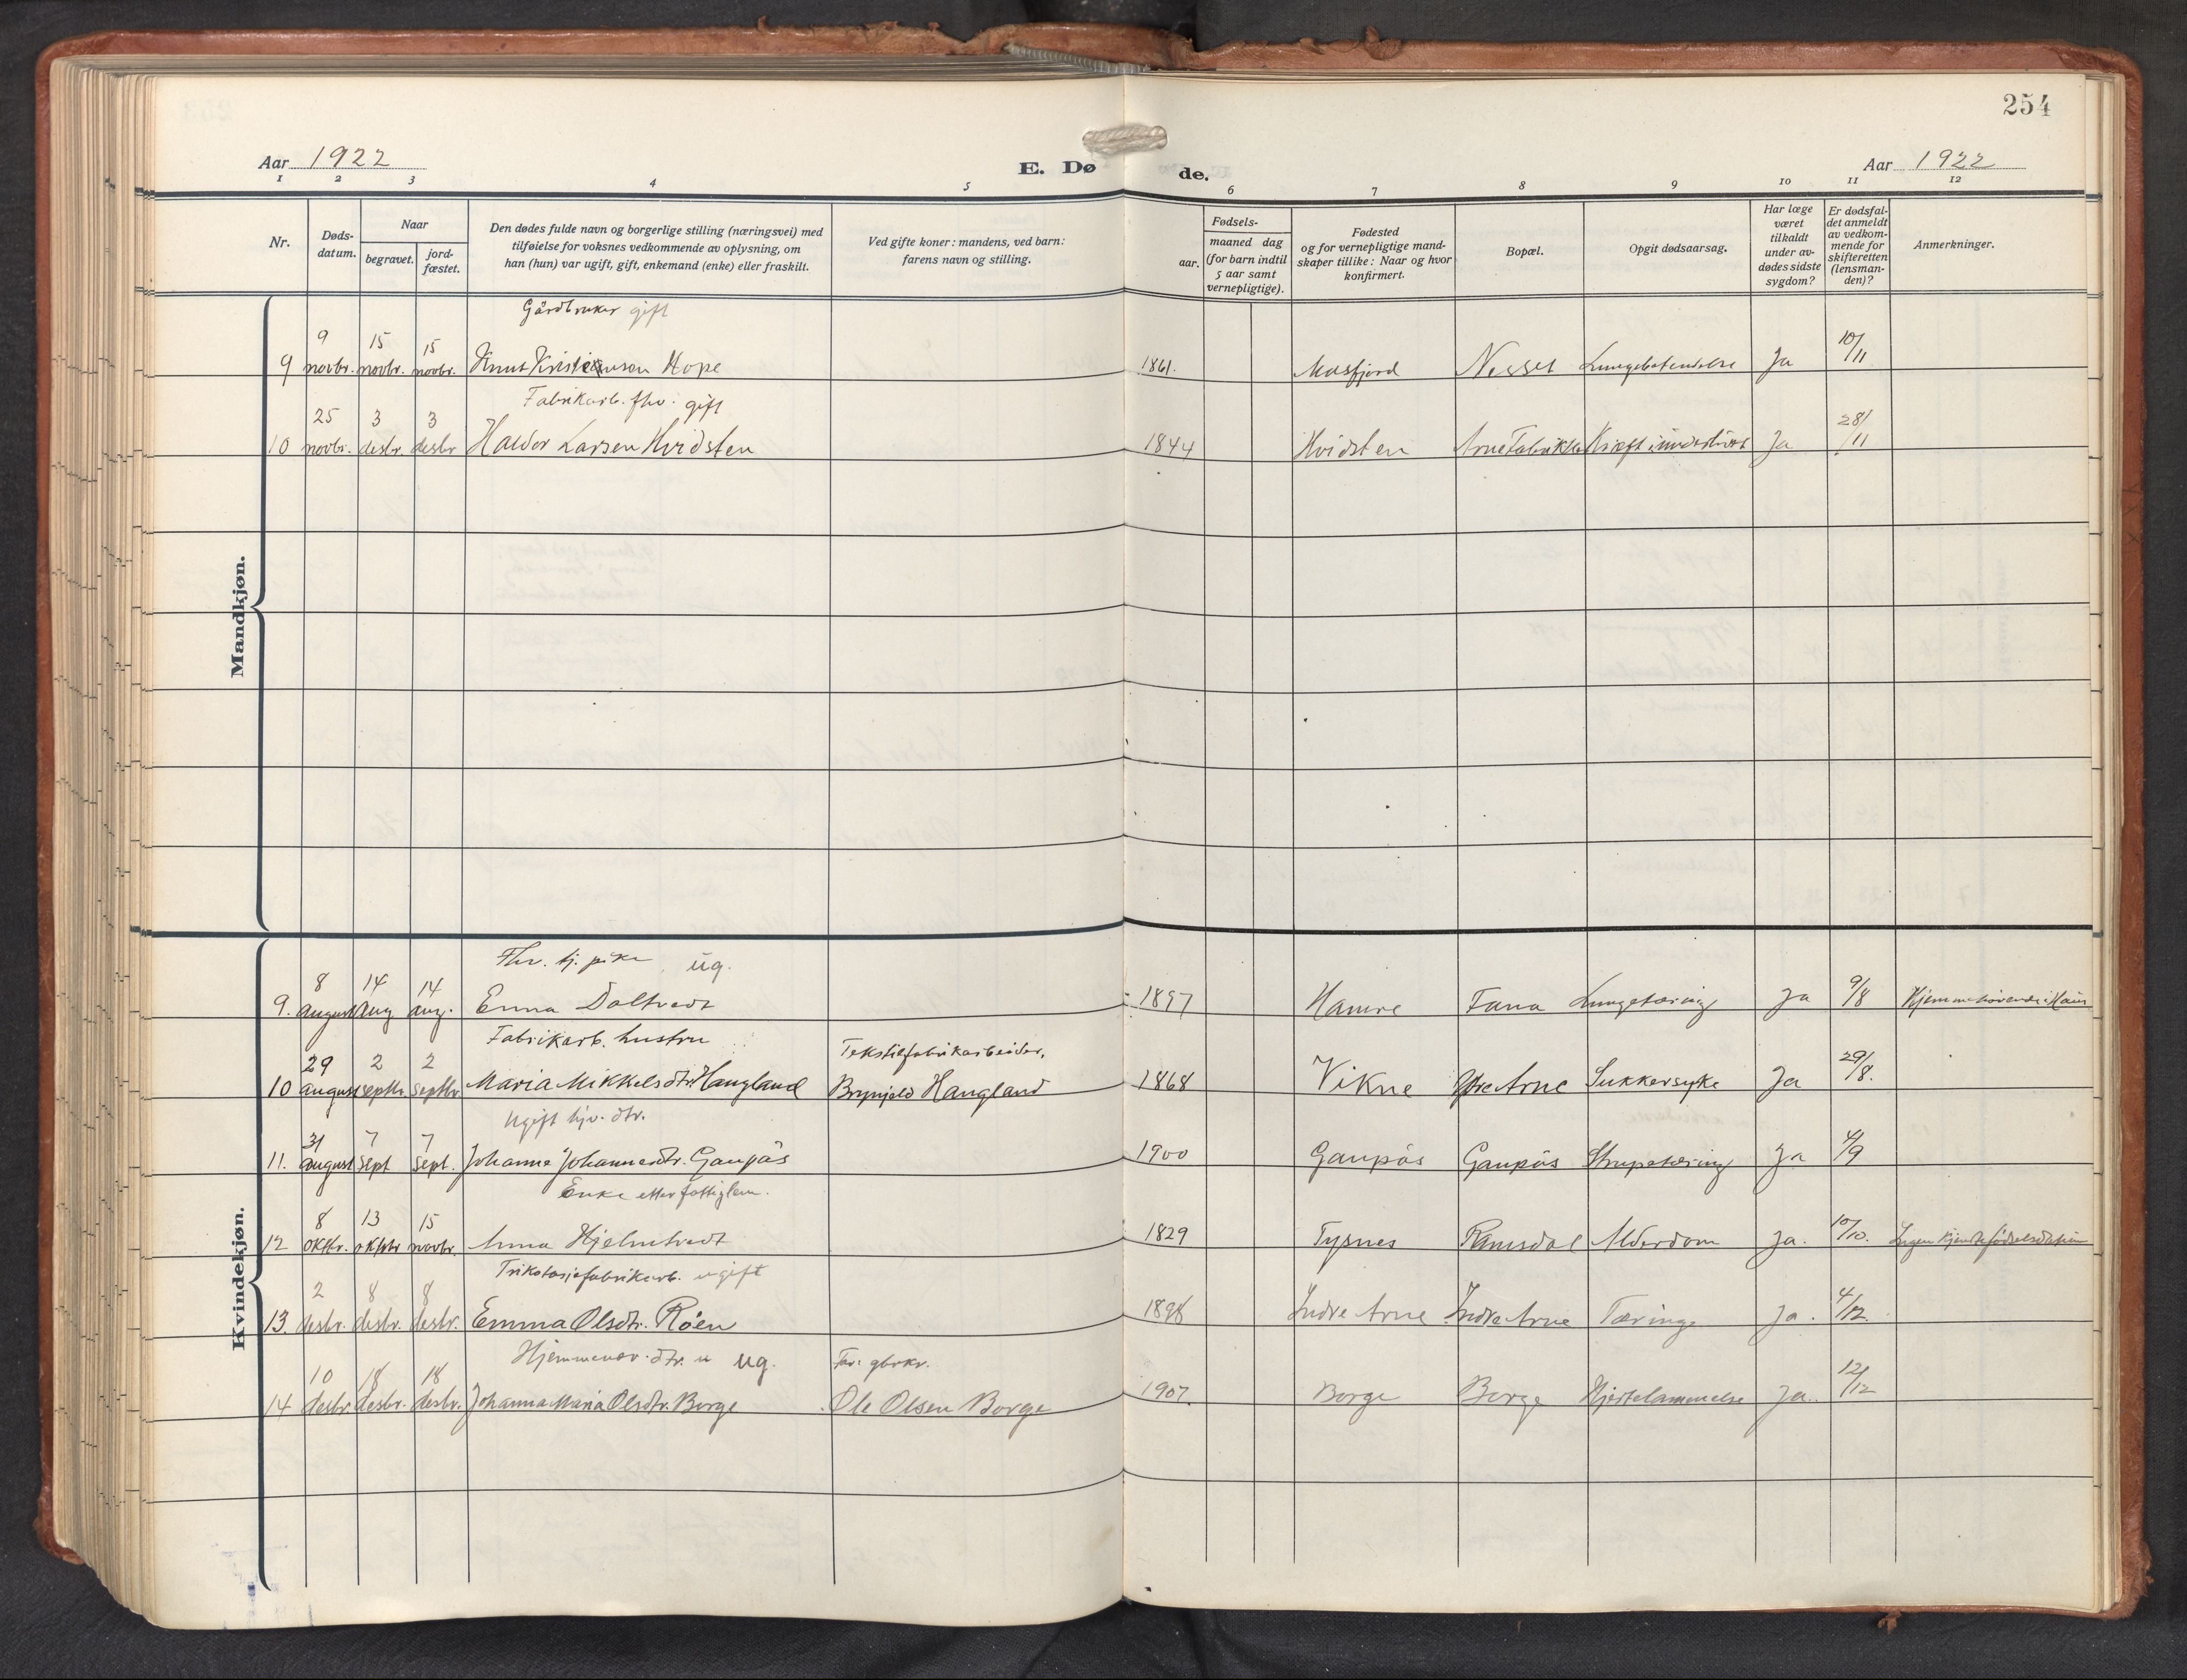 254
Aar 1922
E. Dø
de.
Aar 1922
1 2 3 4 5 6 7 8 9 10 11 12
Nr.
Døds-
datum.
Naar
begravet.
jord-
fæstet.
Den dødes fulde navn og borgerlige stilling (næringsvei) med
tilføielse for voksnes vedkommende av oplysning, om
han (hun) var ugift, gift, enkemand (enke) eller fraskilt.
Ved gifte koner: mandens, ved barn:
farens navn og stilling.
Fødsels-
aar.
maaned dag
(for barn indtil
5 aar samt
vernepligtige).
Fødested
og for vernepligtige mand-
skaper tillike: Naar og hvor
konfirmert.
Bopæl.
Opgit dødsaarsag.
Har læge
været
tilkaldt
under av-
dødes sidste
sygdom?
Er dødsfal-
det anmeldt
av vedkom-
mende for
skifteretten
(lensman-
den)?
Anmerkninger.
Mandkjøn.
Gårdbruker gift
9 15 15 10/11
9 novbr. novbr. novbr. Knut Hope 1861. Masfjord Nesset Lungebetendelse Ja
Fabrikarb. fhv. gift
25 3 3 28/11
10 novbr. desbr. desbr Haldor Larsen Hvidsten 1844 Hvidsten Arne Kræft i Ja
Kvindekjøn.
Fhv. tj. pike ug.
8 14 14
9. august aug aug. Emma Daltvedt 1897 Hamre Fana Lungetæring Ja 9/8
Fabrikarb. hustru Tekstilfabrikarbeider,
29 2 2 29/8.
10 august septbr septbr Maria Mikkelsdtr. Haugland Brynjeld Haugland 1868 Vikne Ytre Arne Sukkersyke Ja
Ugift dtr.
31 7 7
11. august sept sept. Johanne Johannesdtr. Gaupås 1900 Gaupås Gaupås Strupetæring Ja 4/9
Enke etter fattiglem.
8 13 15
12 oktbr. oktbr novbr. Anna Hjelmtvedt 1829 Tysnes Ramsdal Alderdom Ja. 10/10. Ingen kjendt fødselsdatum
Trikotasjefabrikarb. ugift
2 8 8
13. desbr. desbr. desbr. Emma Olsdtr. Røen 1898 Indre Arne Indre Arne Tæring Ja. 4/12.
Hjemmev. dtr. ug. Far: gbrkr.
10 18 18 12/12
14 desbr desbr. desbr. Johanna Maria Olsdtr. Borge Ole Olsen Borge 1907. Borge Borge Hjertelammelse Ja.